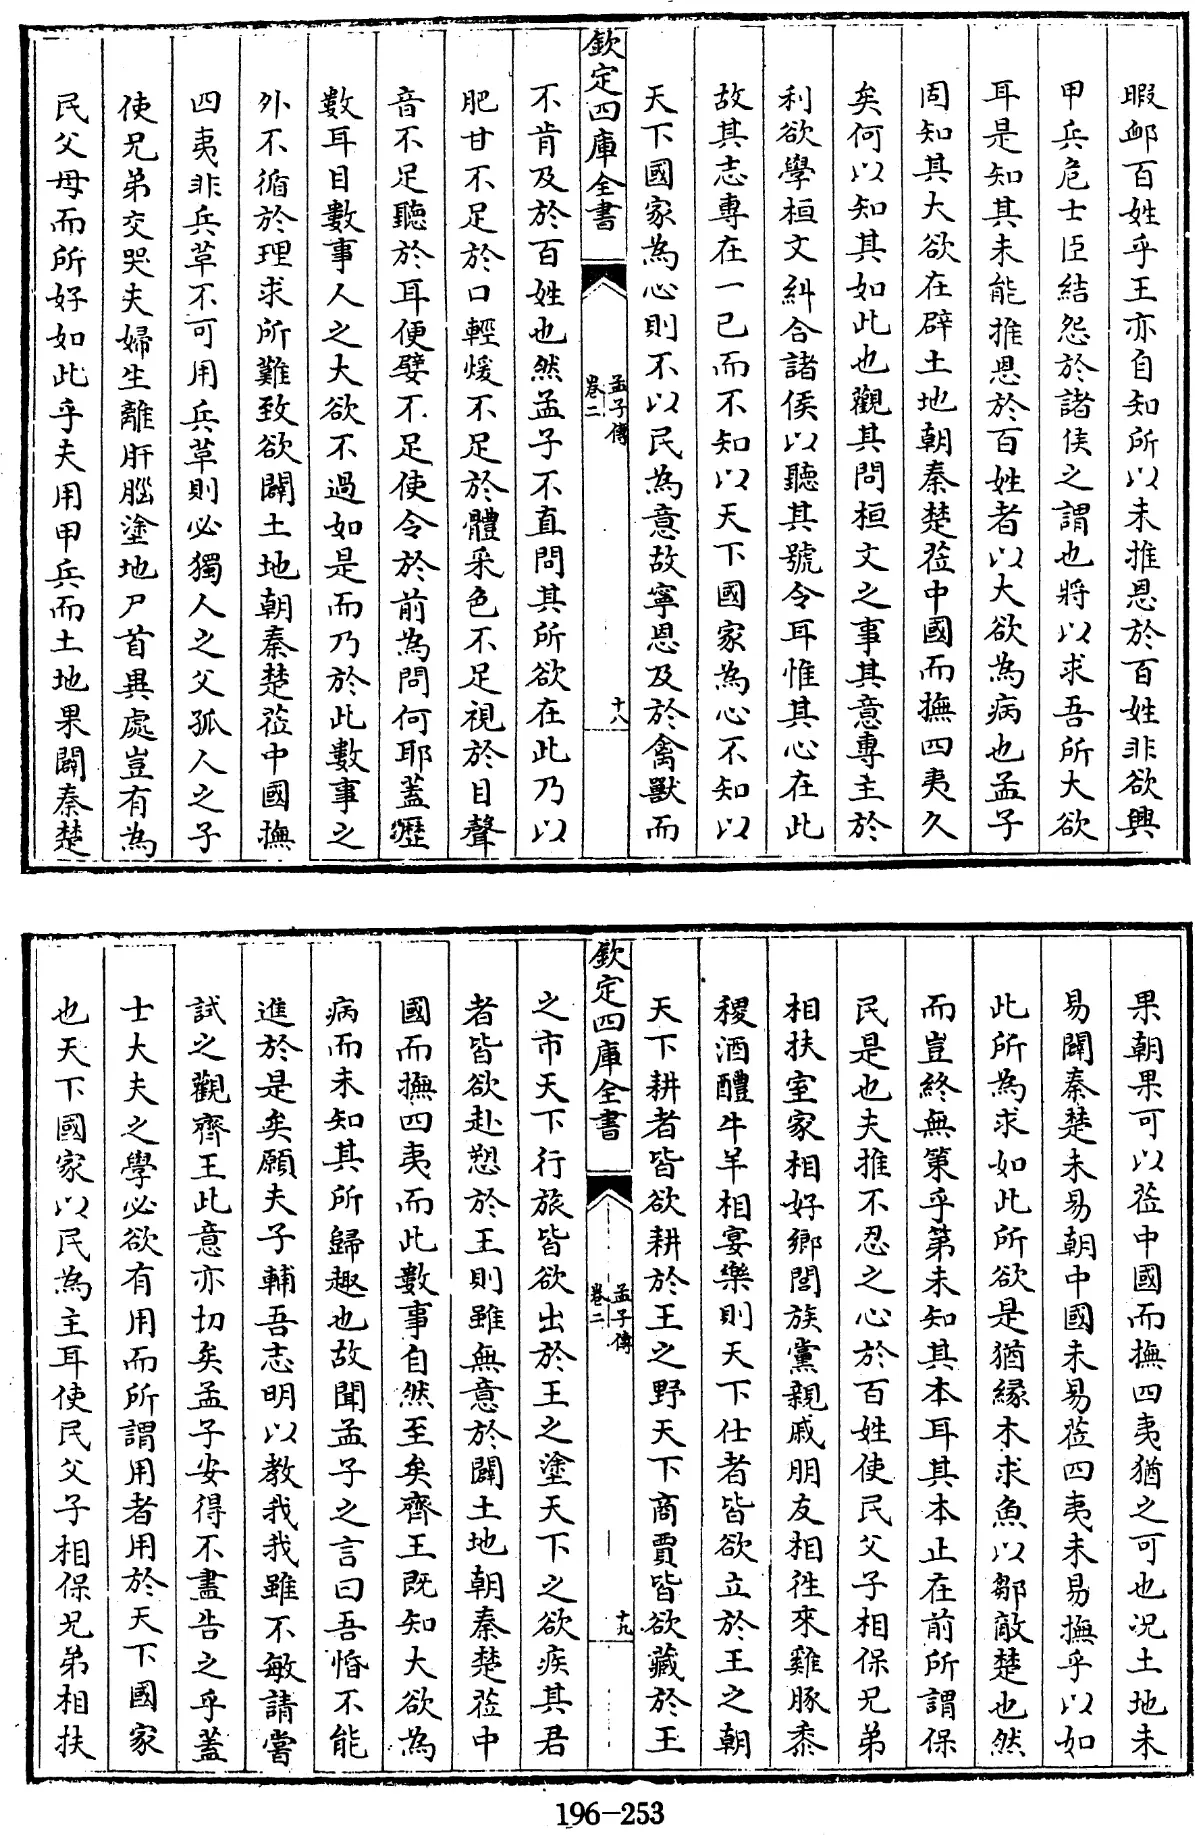 暇䘏百姓乎王亦自知所以未推恩於百姓非欲興
甲兵危士臣結怨於諸侯之謂也將以求吾所大欲
耳是知其未能推恩於百姓者以大欲為病也孟子
固知其大欲在辟土地朝秦楚蒞中國而撫四夷久
矣何以知其如此也觀其問桓文之事其意專主於
利欲學桓文糾合諸侯以聽其號令耳惟其心在此
故其志專在一己而不知以天下國家為心不知以
天下國家為心則不以民為意故寧恩及於禽獸而
欽定四庫全書
孟子傳
卷二
十八
不肯及於百姓也然孟子不直問其所欲在此乃以
肥甘不足於口輕煖不足於體采色不足視於目聲
音不足聽於耳便嬖不足使令於前為問何耶蓋歷
數耳目數事人之大欲不過如是而乃於此數事之
外不循於理求所難致欲闢土地朝秦楚蒞中國撫
四夷非兵革不可用兵革則必獨人之父孤人之子
使兄弟交哭夫婦生離肝腦塗地尸首異處豈有為
民父母而所好如此乎夫用甲兵而土地果闢秦楚
果朝果可以蒞中國而撫四夷猶之可也况土地未
易闢秦楚未易朝中國未易蒞四夷未易撫乎以如
此所為求如此所欲是猶緣木求魚以鄒敵楚也然
而豈終無策乎第未知其本耳其本止在前所謂保
民是也夫推不忍之心於百姓使民父子相保兄弟
相扶室家相好鄉閭族黨親戚朋友相往來雞豚黍
稷酒醴牛羊相宴樂則天下仕者皆欲立於王之朝
天下耕者皆欲耕於王之野天下商賈皆欲藏於王
欽定四庫全書
孟子傳
卷二
十九
之市天下行旅皆欲出於王之塗天下之欲疾其君
者皆欲赴愬於王則雖無意於闢土地朝秦楚蒞中
國而撫四夷而此數事自然至矣齊王既知大欲為
病而未知其所歸趣也故聞孟子之言曰吾惛不能
進於是矣願夫子輔吾志明以教我我雖不敏請嘗
試之觀齊王此意亦切矣孟子安得不盡告之乎蓋
士大夫之學必欲有用而所謂用者用於天下國家
也天下國家以民為主耳使民父子相保兄弟相扶
196-253